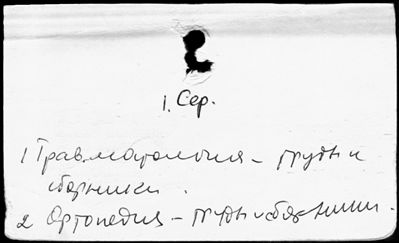 1. Сер.
1 Травматология – труды и
сборники.
2 Ортопедия – труды и сборники.